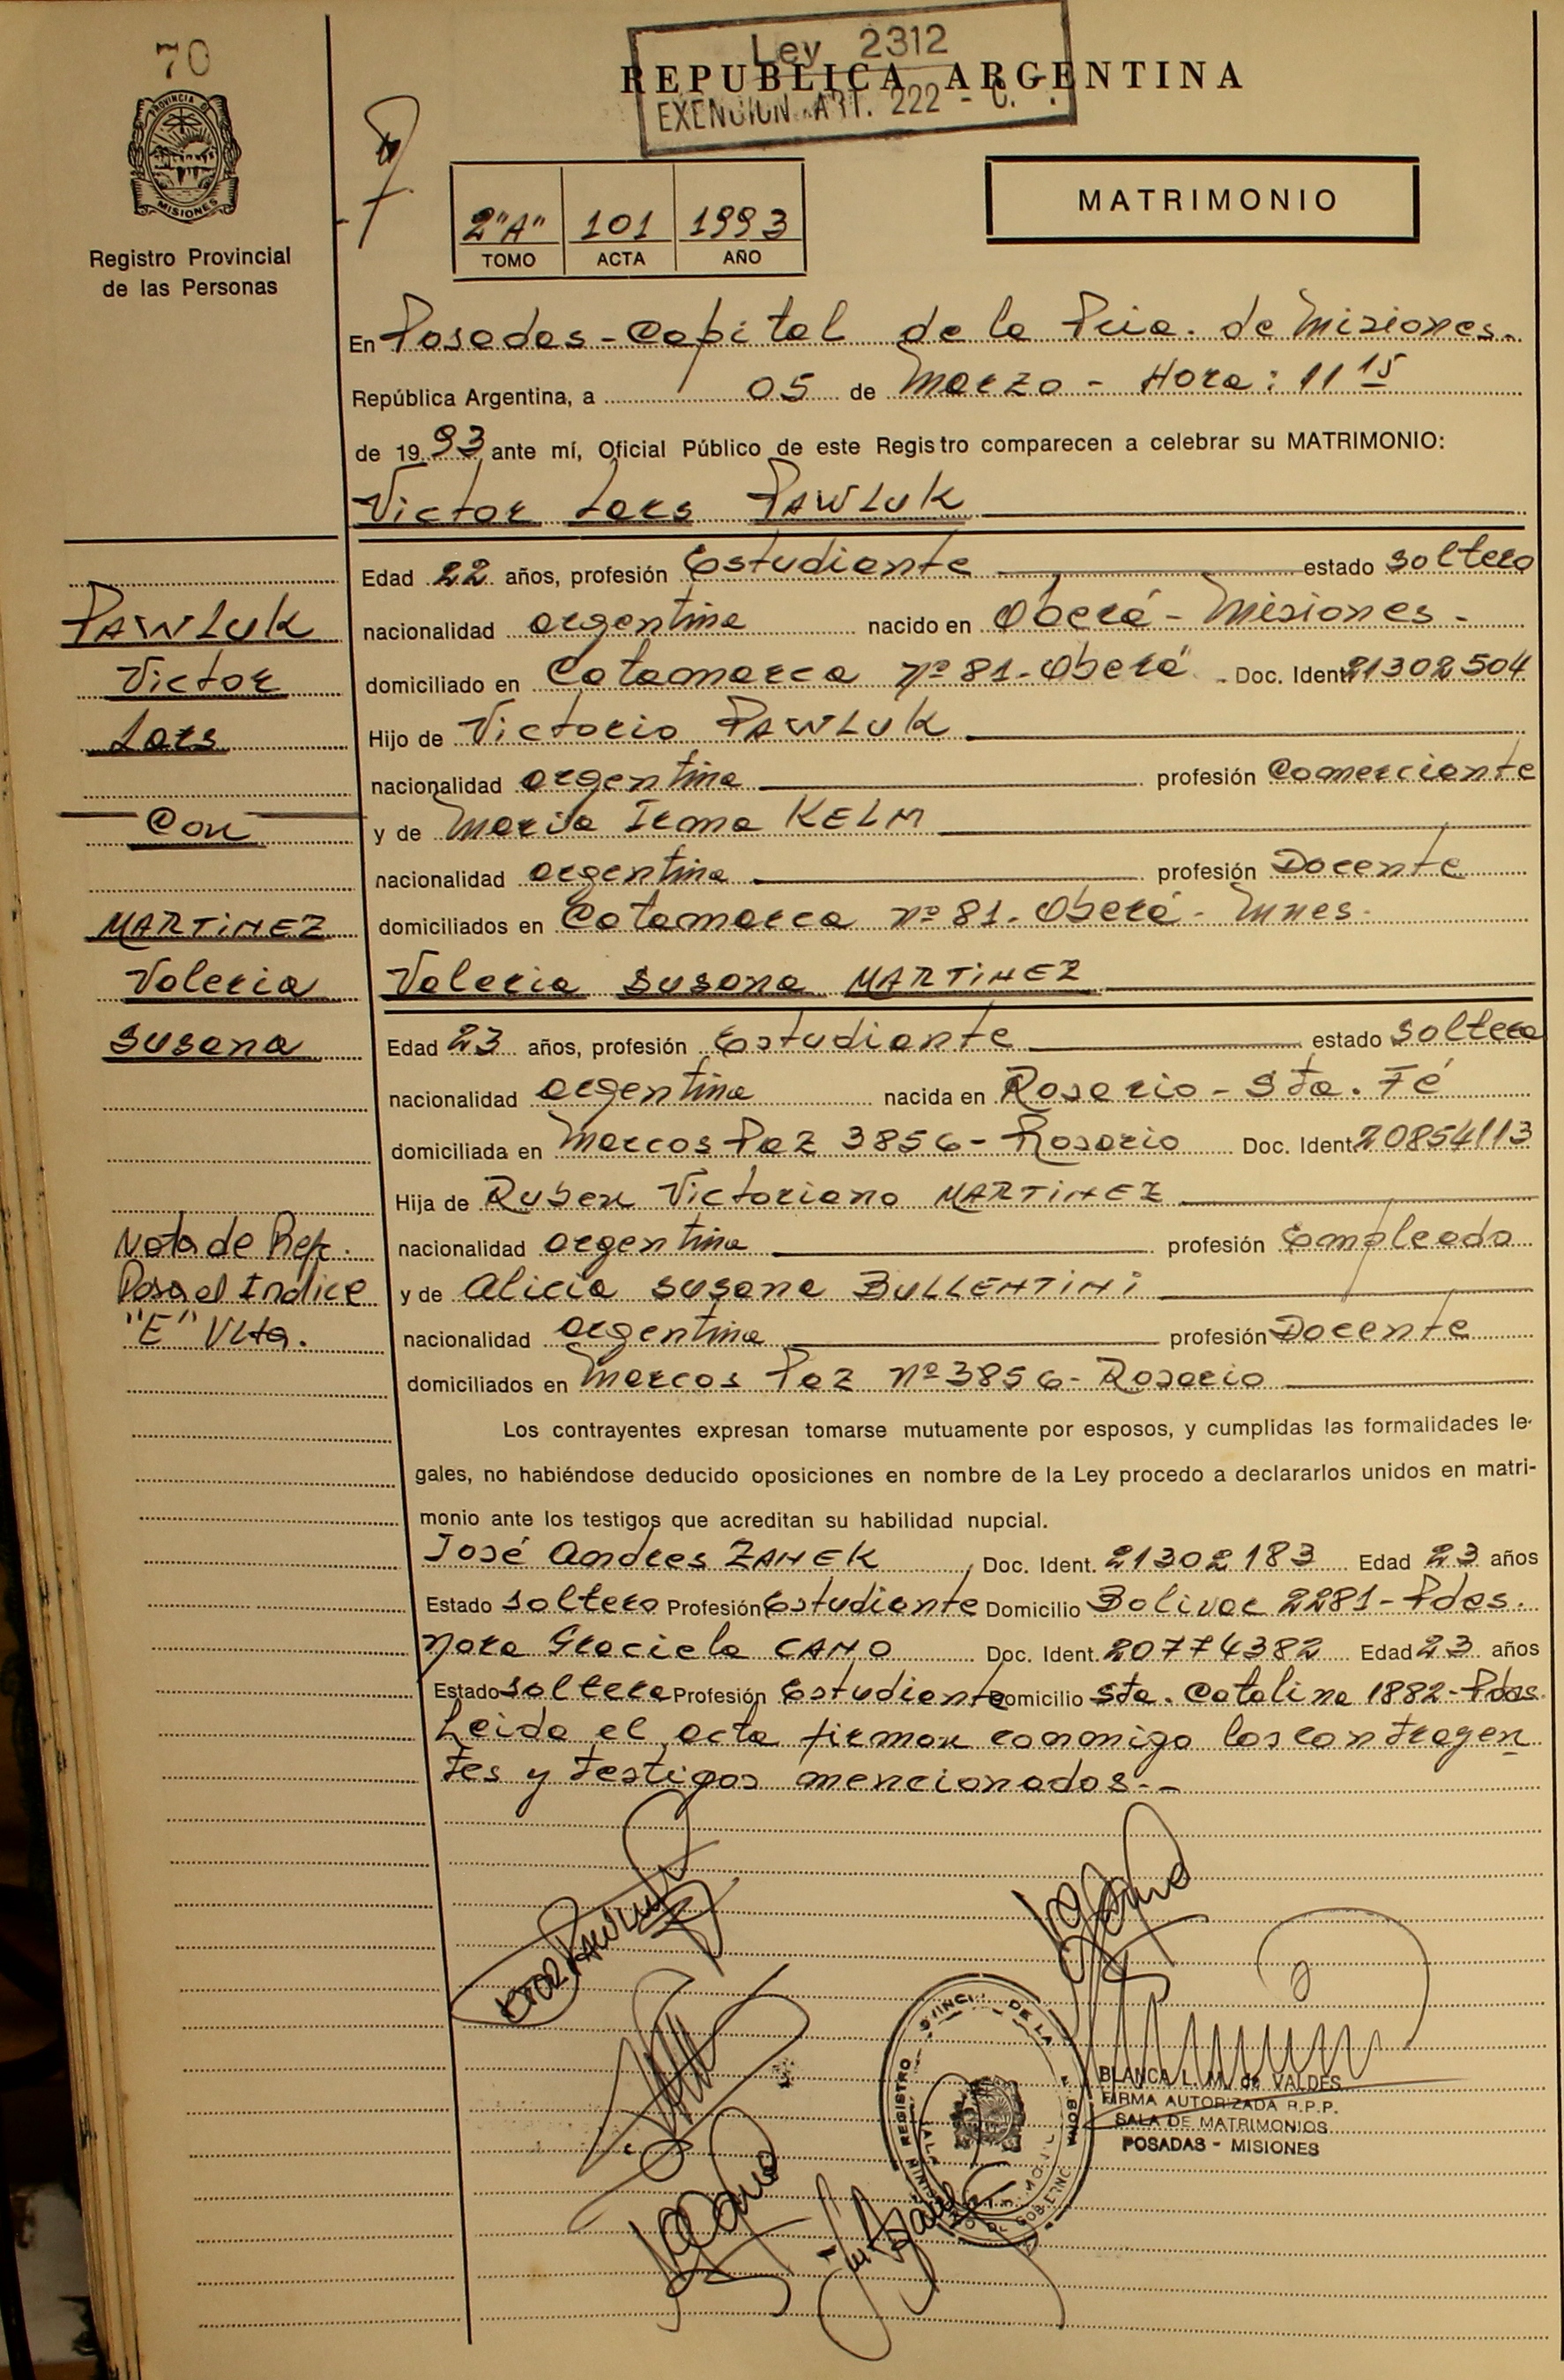 70
Ley 2312
REPUBLICA ARGENTINA
EXENCION ART. 222 - C.
PROVINCIA D
MISIONES
Registro Provincial
de las Personas
2"A" 101 1993
TOMO ACTA AÑO
MATRIMONIO
En Posadas - Capital de la Pcia. de Misiones.
República Argentina, a 05 de Marzo - Hora: 11 15
de 1993 ante mí, Oficial Público de este Registro comparecen a celebrar su MATRIMONIO:
Victor Lars PAWLUK
Edad 22 años, profesión Estudiante estado soltero
PAWLUK
nacionalidad argentina nacido en Oberá - Misiones -
Victor
domiciliado en Catamarca nº 81 - Oberá - Doc. Ident. 21302504
Lars
Hijo de Victorio PAWLUK
nacionalidad argentina profesión Comerciante
Con
y de Maria Irma KELM
nacionalidad argentina profesión Docente
MARTINEZ
domiciliados en Catamarca nº 81 - Oberá - Mnes -
Valeria
Valeria Susana MARTINEZ
Susana
Edad 23 años, profesión Estudiante estado soltera
nacionalidad argentina nacida en Rosario - Sta. Fé
domiciliada en Marcos Paz 3856 - Rosario Doc. Ident. 20854113
Hija de Ruben Victoriano MARTINEZ
Nota de Ref.
nacionalidad argentina profesión Empleado
Pasa al Indice
y de Alicia Susana BULLENTINI
"E" Vlta.
nacionalidad argentina profesión Docente
domiciliados en Marcos Paz nº 3856 - Rosario
Los contrayentes expresan tomarse mutuamente por esposos, y cumplidas las formalidades le-
gales, no habiéndose deducido oposiciones en nombre de la Ley procedo a declararlos unidos en matri-
monio ante los testigos que acreditan su habilidad nupcial.
José Andres ZANEK Doc. Ident. 21302183 Edad 23 años
Estado soltero Profesión Estudiante Domicilio Bolivar 2281 - Pdas.
Nora Graciela CANO Doc. Ident. 20774382 Edad 23 años
Estado soltera Profesión Estudiante Domicilio Sta. Catalina 1882 - Pdas.
Leida el acta firman conmigo los contrayen
tes y testigos mencionados. -
PAWLUK
REGISTRO DE LA
BLANCA L. M. de VALDES
FIRMA AUTORIZADA R.P.P.
SALA DE MATRIMONIOS
POSADAS - MISIONES